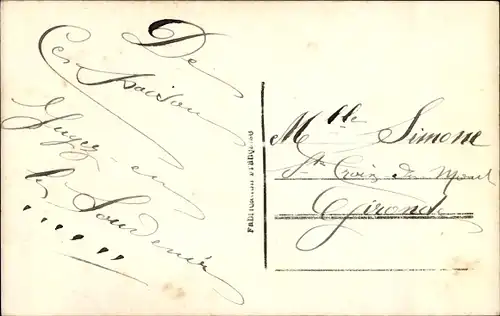 De
Ces
en
le Souvenir
FABRICATION FRANÇAISE
Mlle Simone
Ste Croix du Mont
Gironde